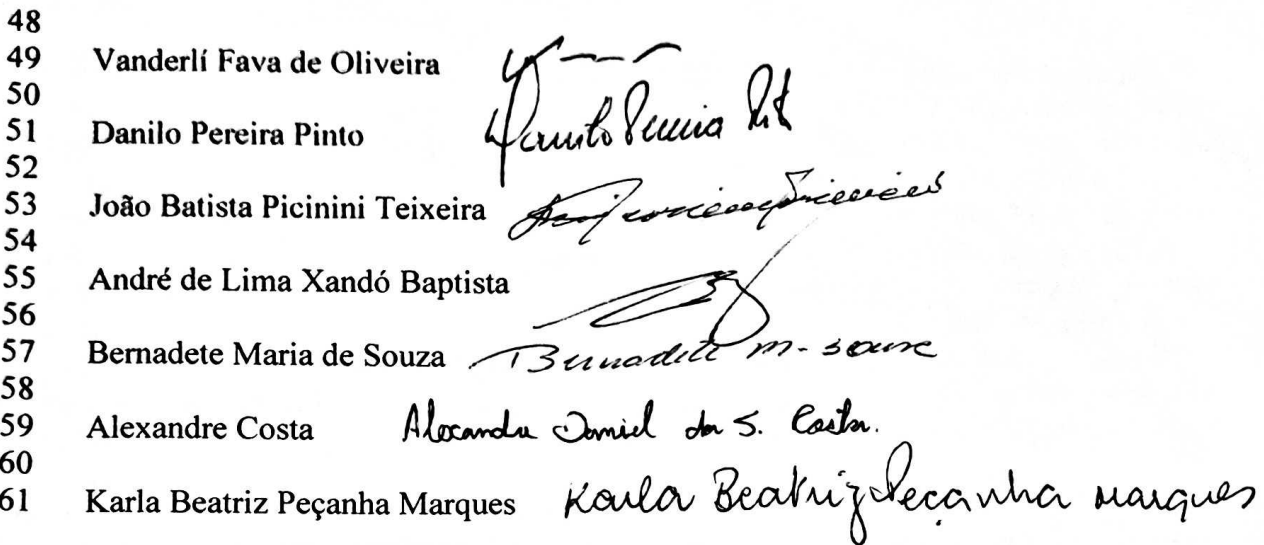 48
49 Vanderlí Fava de Oliveira
50
51 Danilo Pereira Pinto Danilo Pereira Pinto
52
53 João Batista Picinini Teixeira
54
55 André de Lima Xandó Baptista
56
57 Bernadete Maria de Souza Bernadete M. Souza
58
59 Alexandre Costa Alexandre Daniel da S. Costa.
60
61 Karla Beatriz Peçanha Marques Karla Beatriz Peçanha Marques